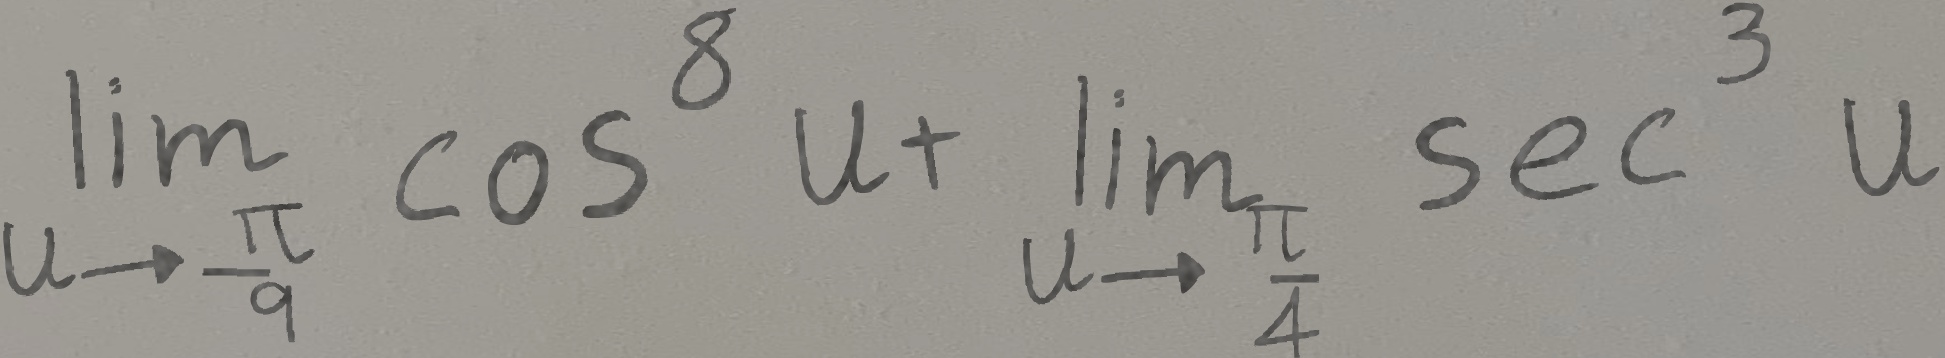 \lim_{u \to \frac{\pi}{9}} \cos^8 u + \lim_{u \to \frac{\pi}{4}} \sec^3 u